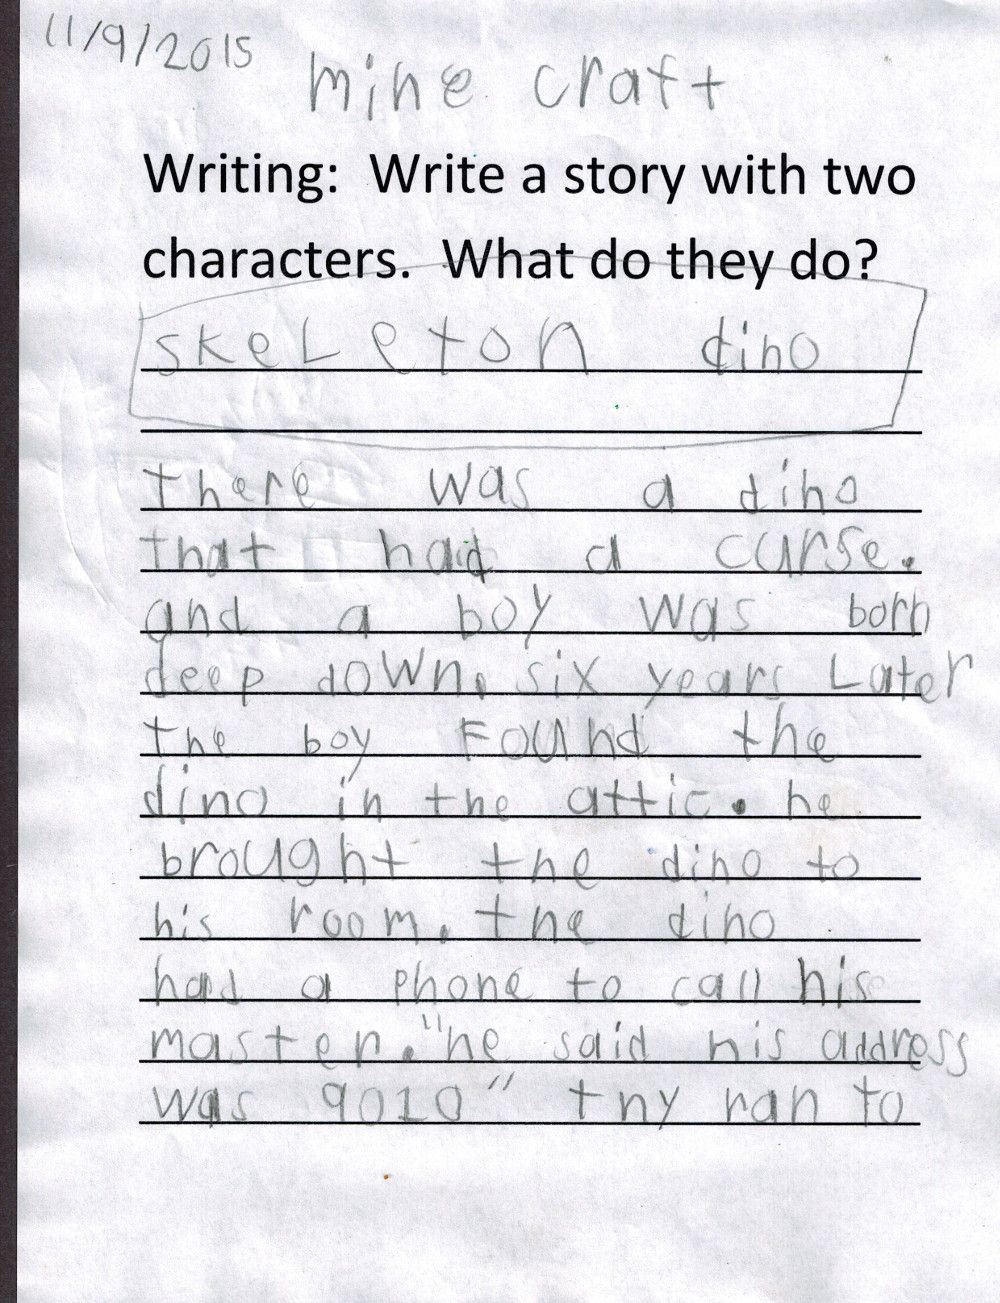 11/9/2015
mine craft
Writing: Write a story with two
characters. What do they do?
skeleton dino
there was a dino
that had a curse.
and a boy was born
deep down. six years Later
the boy Found the
dino in the attic. he
brought the dino to
his room. the dino
had a phone to call his
master. "he said his address
was 9010" thy ran to